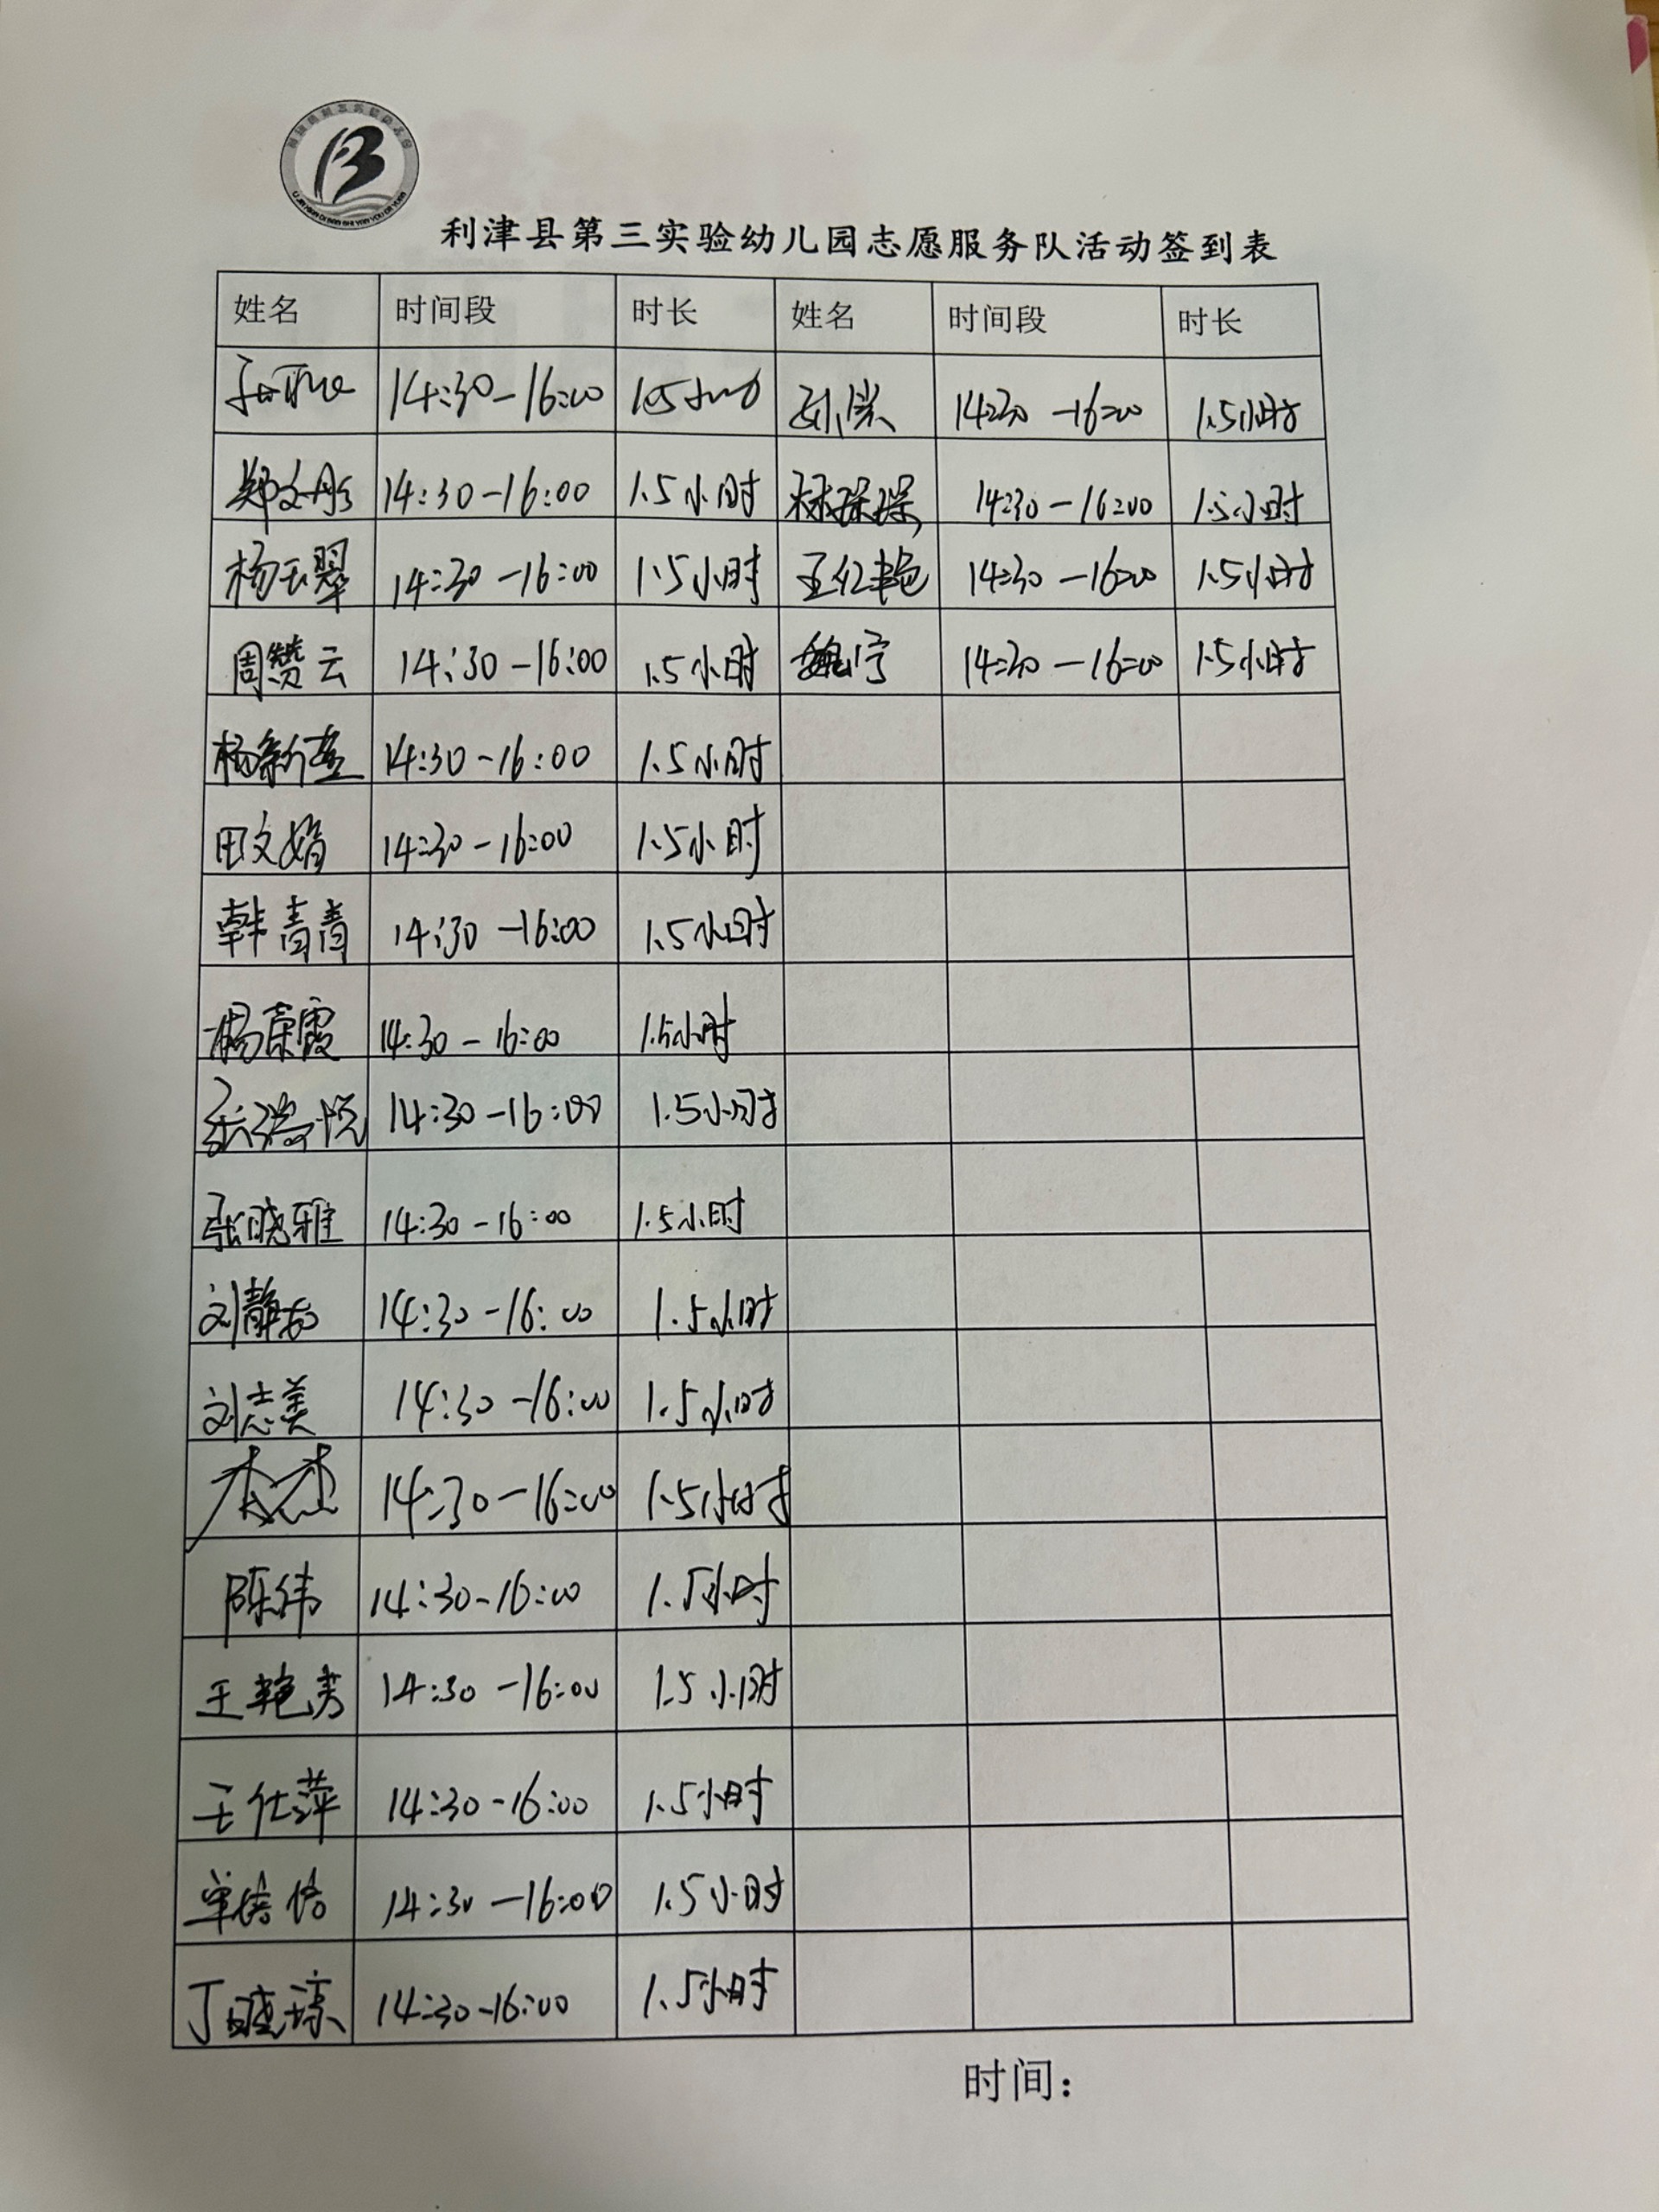 利津县第三实验幼儿园志愿服务队活动签到表
姓名 时间段 时长 姓名 时间段 时长
14:30-16:00 1.5小时 14:30-16:00 1.5小时
郑文彤 14:30-16:00 1.5小时 林琛琛 14:30-16:00 1.5小时
杨玉翠 14:30-16:00 1.5小时 王红艳 14:30-16:00 1.5小时
周赞云 14:30-16:00 1.5小时 魏宁 14:30-16:00 1.5小时
杨新莲 14:30-16:00 1.5小时
田文娟 14:30-16:00 1.5小时
韩青青 14:30-16:00 1.5小时
杨荣霞 14:30-16:00 1.5小时
张瑞悦 14:30-16:00 1.5小时
张晓雅 14:30-16:00 1.5小时
刘静 14:30-16:00 1.5小时
刘志美 14:30-16:00 1.5小时
14:30-16:00 1.5小时
陈伟 14:30-16:00 1.5小时
王艳秀 14:30-16:00 1.5小时
王仕萍 14:30-16:00 1.5小时
单倍倍 14:30-16:00 1.5小时
丁晓琼 14:30-16:00 1.5小时
时间：